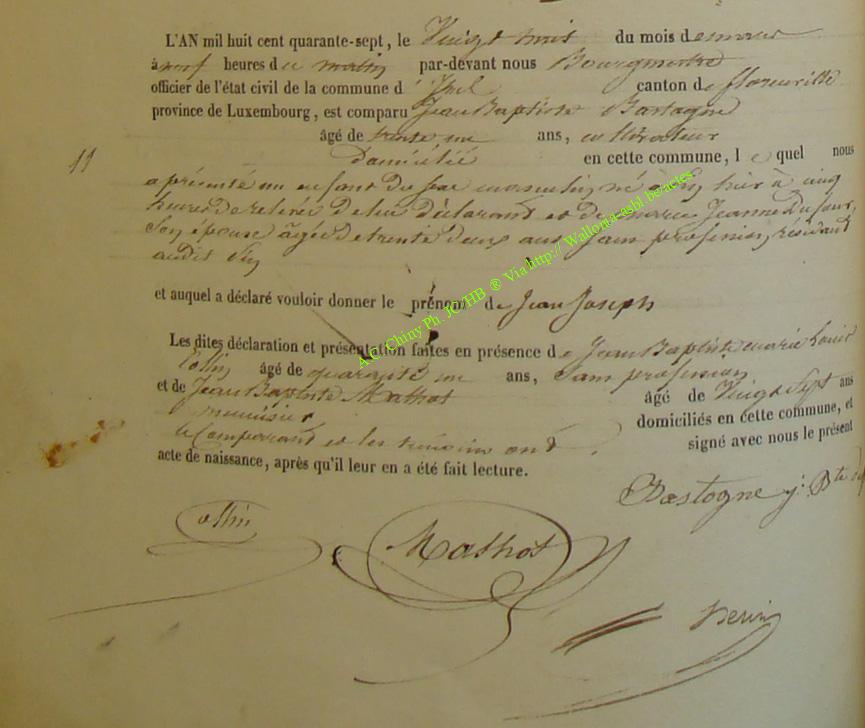 L'AN mil huit cent quarante-sept, le Vingt trois du mois de mars
à neuf heures du matin par-devant nous Bourgmestre
officier de l'état civil de la commune d' Izel canton de florenville
province de Luxembourg, est comparu Jean Baptiste Bastogne
âgé de trente un ans, cultivateur
11 Domicilié en cette commune, le quel nous
a présenté un enfant du sexe masculin, né à hier à cinq
heures de relevée de lui déclarant et de marie Jeanne Dufour,
Son épouse âgée de trente deux ans sans profession, résidant
audit
et auquel a déclaré vouloir donner le prénom de Jean Joseph
Les dites déclaration et présentation faites en présence de Jean Baptiste marie Louis
Collin âgé de quarante un ans, Sans profession
et de Jean Baptiste Mathot âgé de Vingt Sept ans
menuisier domiciliés en cette commune, et
le Comparant et les témoins ont signé avec nous le présent
acte de naissance, après qu'il leur en a été fait lecture.
Bastogne j: Bte
Collin
Mathot
A.C. Chiny Ph. JC/HB ® Via http:// Wallonia-asbl.be/actes